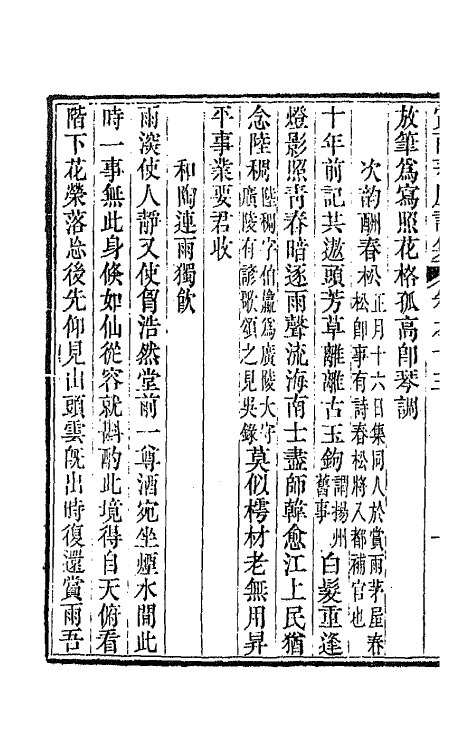 放筆為寫照花格孤高卽琴調
次韵酬春松正月十六日集同人於賞雨茅屋春松卽事有詩春松將入都補官也
十年前記共遨頭芳草離離古玉鉤謂揚州舊事白髮重逢
燈影照青春暗逐雨聲流海南士盡師韓愈江上民猶
念陸稠陸稠字伯瀛為廣陵大守廣陵有諺歌頌之見吳錄莫似樗材老無用昇
平事業要君收
和陶連雨獨飲
雨淡使人靜又使胷浩然堂前一尊酒宛坐煙水間此
時一事無此身倏如仙從容就斟酌此境得自天俯看
階下花榮落忘後先仰見山頭雲旣出時復還賞雨吾